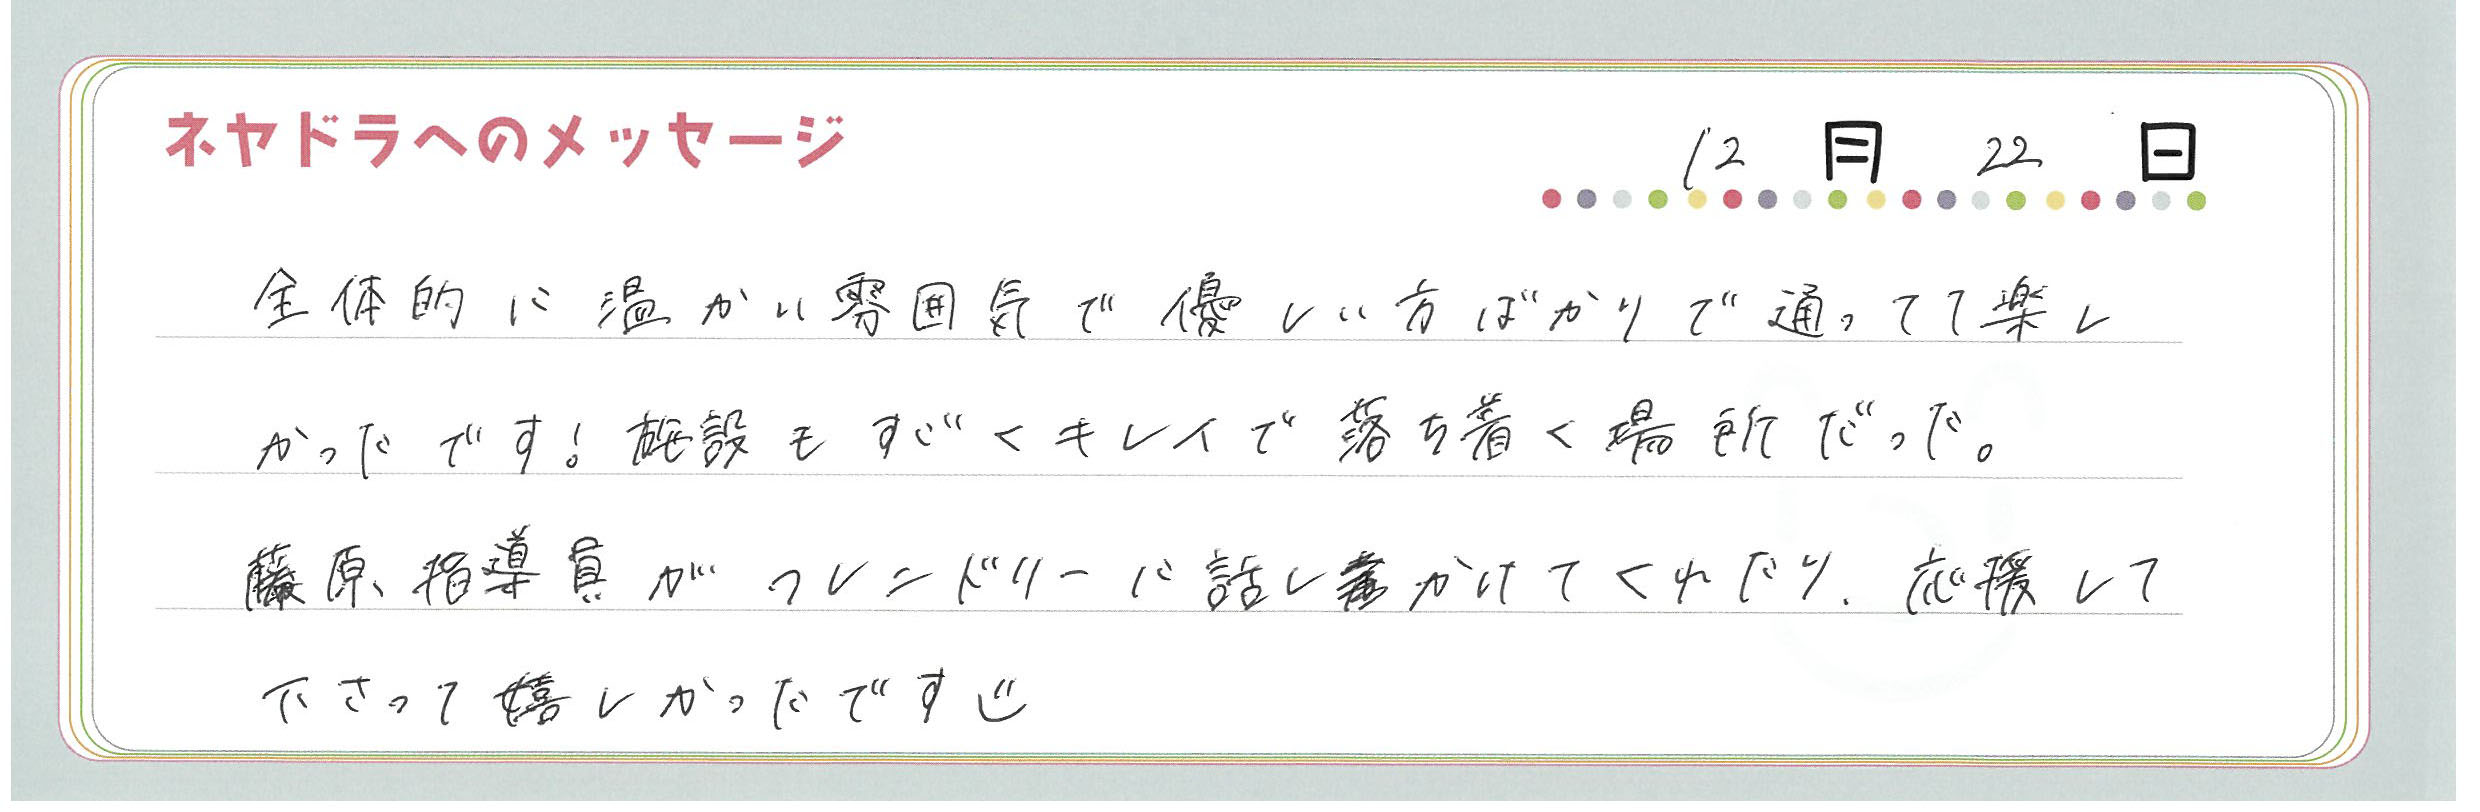 ネヤドラへのメッセージ
12月 22日
全体的に温かい雰囲気で優しい方ばかりで通ってて楽し
かったです!施設もすごくキレイで落ち着く場所だった。
藤原指導員がフレンドリーに話しかけてくれたり、応援して
下さって嬉しかったです